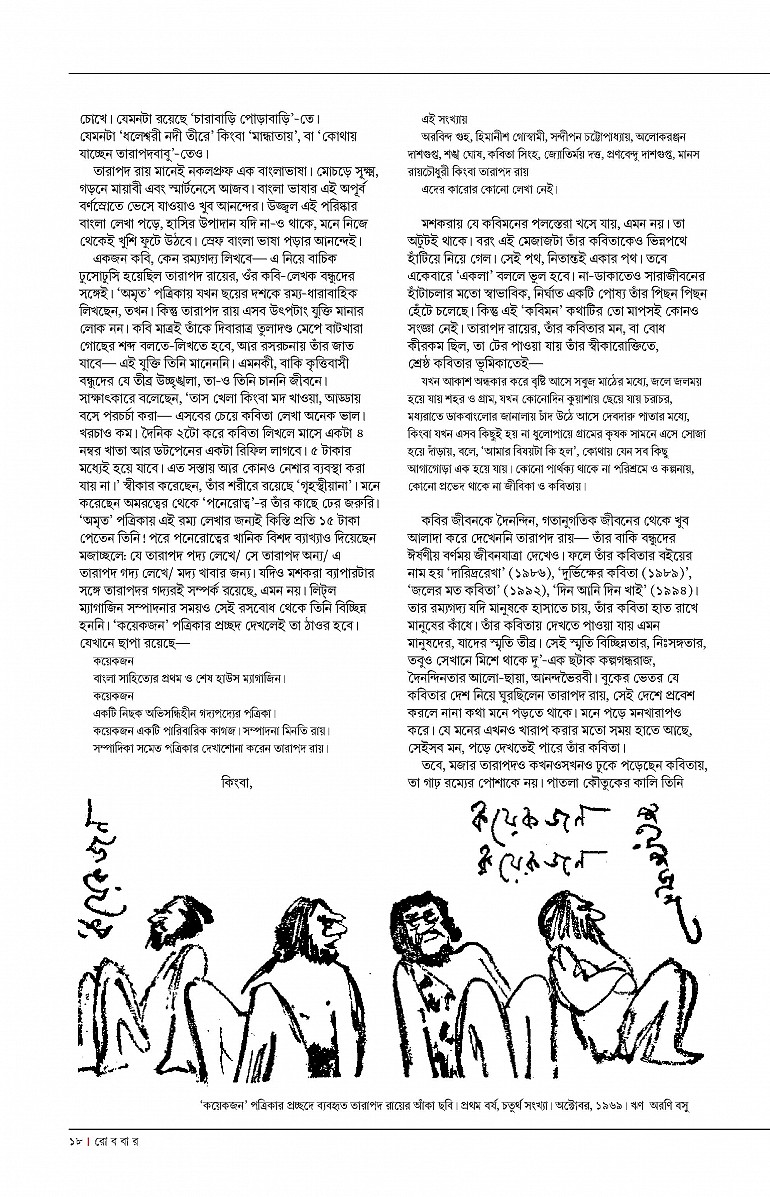 চোখে। যেমনটা রয়েছে ‘চারাবাড়ি পোড়াবাড়ি’-তে।
যেমনটা ‘ধলেশ্বরী নদী তীরে’ কিংবা ‘মান্ধাতায়’, বা ‘কোথায়
যাচ্ছেন তারাপদবাবু’-তেও।
তারাপদ রায় মানেই নকলপ্রুফ এক বাংলাভাষা। মোচড়ে সূক্ষ্ম,
গড়নে মায়াবী এবং স্মার্টনেসে আজব। বাংলা ভাষার এই অপূর্ব
বর্ণস্রোতে ভেসে যাওয়াও খুব আনন্দের। উজ্জ্বল এই পরিষ্কার
বাংলা লেখা পড়ে, হাসির উপাদান যদি না-ও থাকে, মনে নিজে
থেকেই খুশি ফুটে উঠবে। স্রেফ বাংলা ভাষা পড়ার আনন্দেই।
একজন কবি, কেন রম্যগদ্য লিখবে— এ নিয়ে বাচিক
ঢুসোঢুসি হয়েছিল তারাপদ রায়ের, ওঁর কবি-লেখক বন্ধুদের
সঙ্গেই। ‘অমৃত’ পত্রিকায় যখন ছয়ের দশকে রম্য-ধারাবাহিক
লিখছেন, তখন। কিন্তু তারাপদ রায় এসব উৎপটাং যুক্তি মানার
লোক নন। কবি মাত্রই তাঁকে দিবারাত্র তুলাদণ্ড মেপে বাটখারা
গোছের শব্দ বলতে-লিখতে হবে, আর রসরচনায় তাঁর জাত
যাবে— এই যুক্তি তিনি মানেননি। এমনকী, বাকি কৃত্তিবাসী
বন্ধুদের যে তীব্র উচ্ছৃঙ্খলা, তা-ও তিনি চাননি জীবনে।
সাক্ষাৎকারে বলেছেন, ‘তাস খেলা কিংবা মদ খাওয়া, আড্ডায়
বসে পরচর্চা করা— এসবের চেয়ে কবিতা লেখা অনেক ভাল।
খরচাও কম। দৈনিক ২টো করে কবিতা লিখলে মাসে একটা ৪
নম্বর খাতা আর ডটপেনের একটা রিফিল লাগবে। ৫ টাকার
মধ্যেই হয়ে যাবে। এত সস্তায় আর কোনও নেশার ব্যবস্থা করা
যায় না।’ স্বীকার করেছেন, তাঁর শরীরে রয়েছে ‘গৃহস্থীয়ানা’। মনে
করেছেন অমরত্বের থেকে ‘পনেরোত্ব’-র তাঁর কাছে ঢের জরুরি।
‘অমৃত’ পত্রিকায় এই রম্য লেখার জন্যই কিস্তি প্রতি ১৫ টাকা
পেতেন তিনি! পরে পনেরোত্বের খানিক বিশদ ব্যাখ্যাও দিয়েছেন
মজাচ্ছলে: যে তারাপদ পদ্য লেখে/ সে তারাপদ অন্য/ এ
তারাপদ গদ্য লেখে/ মদ্য খাবার জন্য। যদিও মশকরা ব্যাপারটার
সঙ্গে তারাপদর গদ্যরই সম্পর্ক রয়েছে, এমন নয়। লিট্‌ল
ম্যাগাজিন সম্পাদনার সময়ও সেই রসবোধ থেকে তিনি বিচ্ছিন্ন
হননি। ‘কয়েকজন’ পত্রিকার প্রচ্ছদ দেখলেই তা ঠাওর হবে।
যেখানে ছাপা রয়েছে—
কয়েকজন
বাংলা সাহিত্যের প্রথম ও শেষ হাউস ম্যাগাজিন।
কয়েকজন
একটি নিছক অভিসন্ধিহীন গদ্যপদ্যের পত্রিকা।
কয়েকজন একটি পারিবারিক কাগজ। সম্পাদনা মিনতি রায়।
সম্পাদিকা সমেত পত্রিকার দেখাশোনা করেন তারাপদ রায়।
কিংবা,
এই সংখ্যায়
অরবিন্দ গুহ, হিমানীশ গোস্বামী, সন্দীপন চট্টোপাধ্যায়, অলোকরঞ্জন
দাশগুপ্ত, শঙ্খ ঘোষ, কবিতা সিংহ, জ্যোতির্ময় দত্ত, প্রণবেন্দু দাশগুপ্ত, মানস
রায়চৌধুরী কিংবা তারাপদ রায়
এদের কারোর কোনো লেখা নেই।
মশকরায় যে কবিমনের পলস্তেরা খসে যায়, এমন নয়। তা
অটুটই থাকে। বরং এই মেজাজটা তাঁর কবিতাকেও ভিন্নপথে
হাঁটিয়ে নিয়ে গেল। সেই পথ, নিতান্তই একার পথ। তবে
একেবারে ‘একলা’ বললে ভুল হবে। না-ডাকাতেও সারাজীবনের
হাঁটাচলার মতো স্বাভাবিক, নির্ঘাত একটি পোষ্য তাঁর পিছন পিছন
হেঁটে চলেছে। কিন্তু এই ‘কবিমন’ কথাটির তো মাপসই কোনও
সংজ্ঞা নেই। তারাপদ রায়ের, তাঁর কবিতার মন, বা বোধ
কীরকম ছিল, তা টের পাওয়া যায় তাঁর স্বীকারোক্তিতে,
শ্রেষ্ঠ কবিতার ভূমিকাতেই—
যখন আকাশ অন্ধকার করে বৃষ্টি আসে সবুজ মাঠের মধ্যে, জলে জলময়
হয়ে যায় শহর ও গ্রাম, যখন কোনোদিন কুয়াশায় ছেয়ে যায় চরাচর,
মধ্যরাতে ডাকবাংলোর জানালায় চাঁদ উঠে আসে দেবদারু পাতার মধ্যে,
কিংবা যখন এসব কিছুই হয় না ধুলোপায়ে গ্রামের কৃষক সামনে এসে সোজা
হয়ে দাঁড়ায়, বলে, ‘আমার বিষয়টা কি হল’, কোথায় যেন সব কিছু
আগাগোড়া এক হয়ে যায়। কোনো পার্থক্য থাকে না পরিশ্রমে ও কল্পনায়,
কোনো প্রভেদ থাকে না জীবিকা ও কবিতায়।
কবির জীবনকে দৈনন্দিন, গতানুগতিক জীবনের থেকে খুব
আলাদা করে দেখেননি তারাপদ রায়— তাঁর বাকি বন্ধুদের
ঈর্ষণীয় বর্ণময় জীবনযাত্রা দেখেও। ফলে তাঁর কবিতার বইয়ের
নাম হয় ‘দারিদ্ররেখা’ (১৯৮৬), ‘দুর্ভিক্ষের কবিতা (১৯৮৯)’,
‘জলের মত কবিতা’ (১৯৯২), ‘দিন আনি দিন খাই’ (১৯৯৪)।
তার রম্যগদ্য যদি মানুষকে হাসাতে চায়, তাঁর কবিতা হাত রাখে
মানুষের কাঁধে। তাঁর কবিতায় দেখতে পাওয়া যায় এমন
মানুষদের, যাদের স্মৃতি তীব্র। সেই স্মৃতি বিচ্ছিন্নতার, নিঃসঙ্গতার,
তবুও সেখানে মিশে থাকে দু’-এক ছটাক কল্পগন্ধরাজ,
দৈনন্দিনতার আলো-ছায়া, আনন্দভৈরবী। বুকের ভেতর যে
কবিতার দেশ নিয়ে ঘুরছিলেন তারাপদ রায়, সেই দেশে প্রবেশ
করলে নানা কথা মনে পড়তে থাকে। মনে পড়ে মনখারাপও
করে। যে মনের এখনও খারাপ করার মতো সময় হাতে আছে,
সেইসব মন, পড়ে দেখতেই পারে তাঁর কবিতা।
তবে, মজার তারাপদও কখনওসখনও ঢুকে পড়েছেন কবিতায়,
তা গাঢ় রম্যের পোশাকে নয়। পাতলা কৌতুকের কালি তিনি
কয়েকজন
কয়েকজন
কয়েকজন
কয়েকজন
‘কয়েকজন’ পত্রিকার প্রচ্ছদে ব্যবহৃত তারাপদ রায়ের আঁকা ছবি। প্রথম বর্ষ, চতুর্থ সংখ্যা। অক্টোবর, ১৯৬৯। ঋণ অরণি বসু
১৮ | রো ব বা র